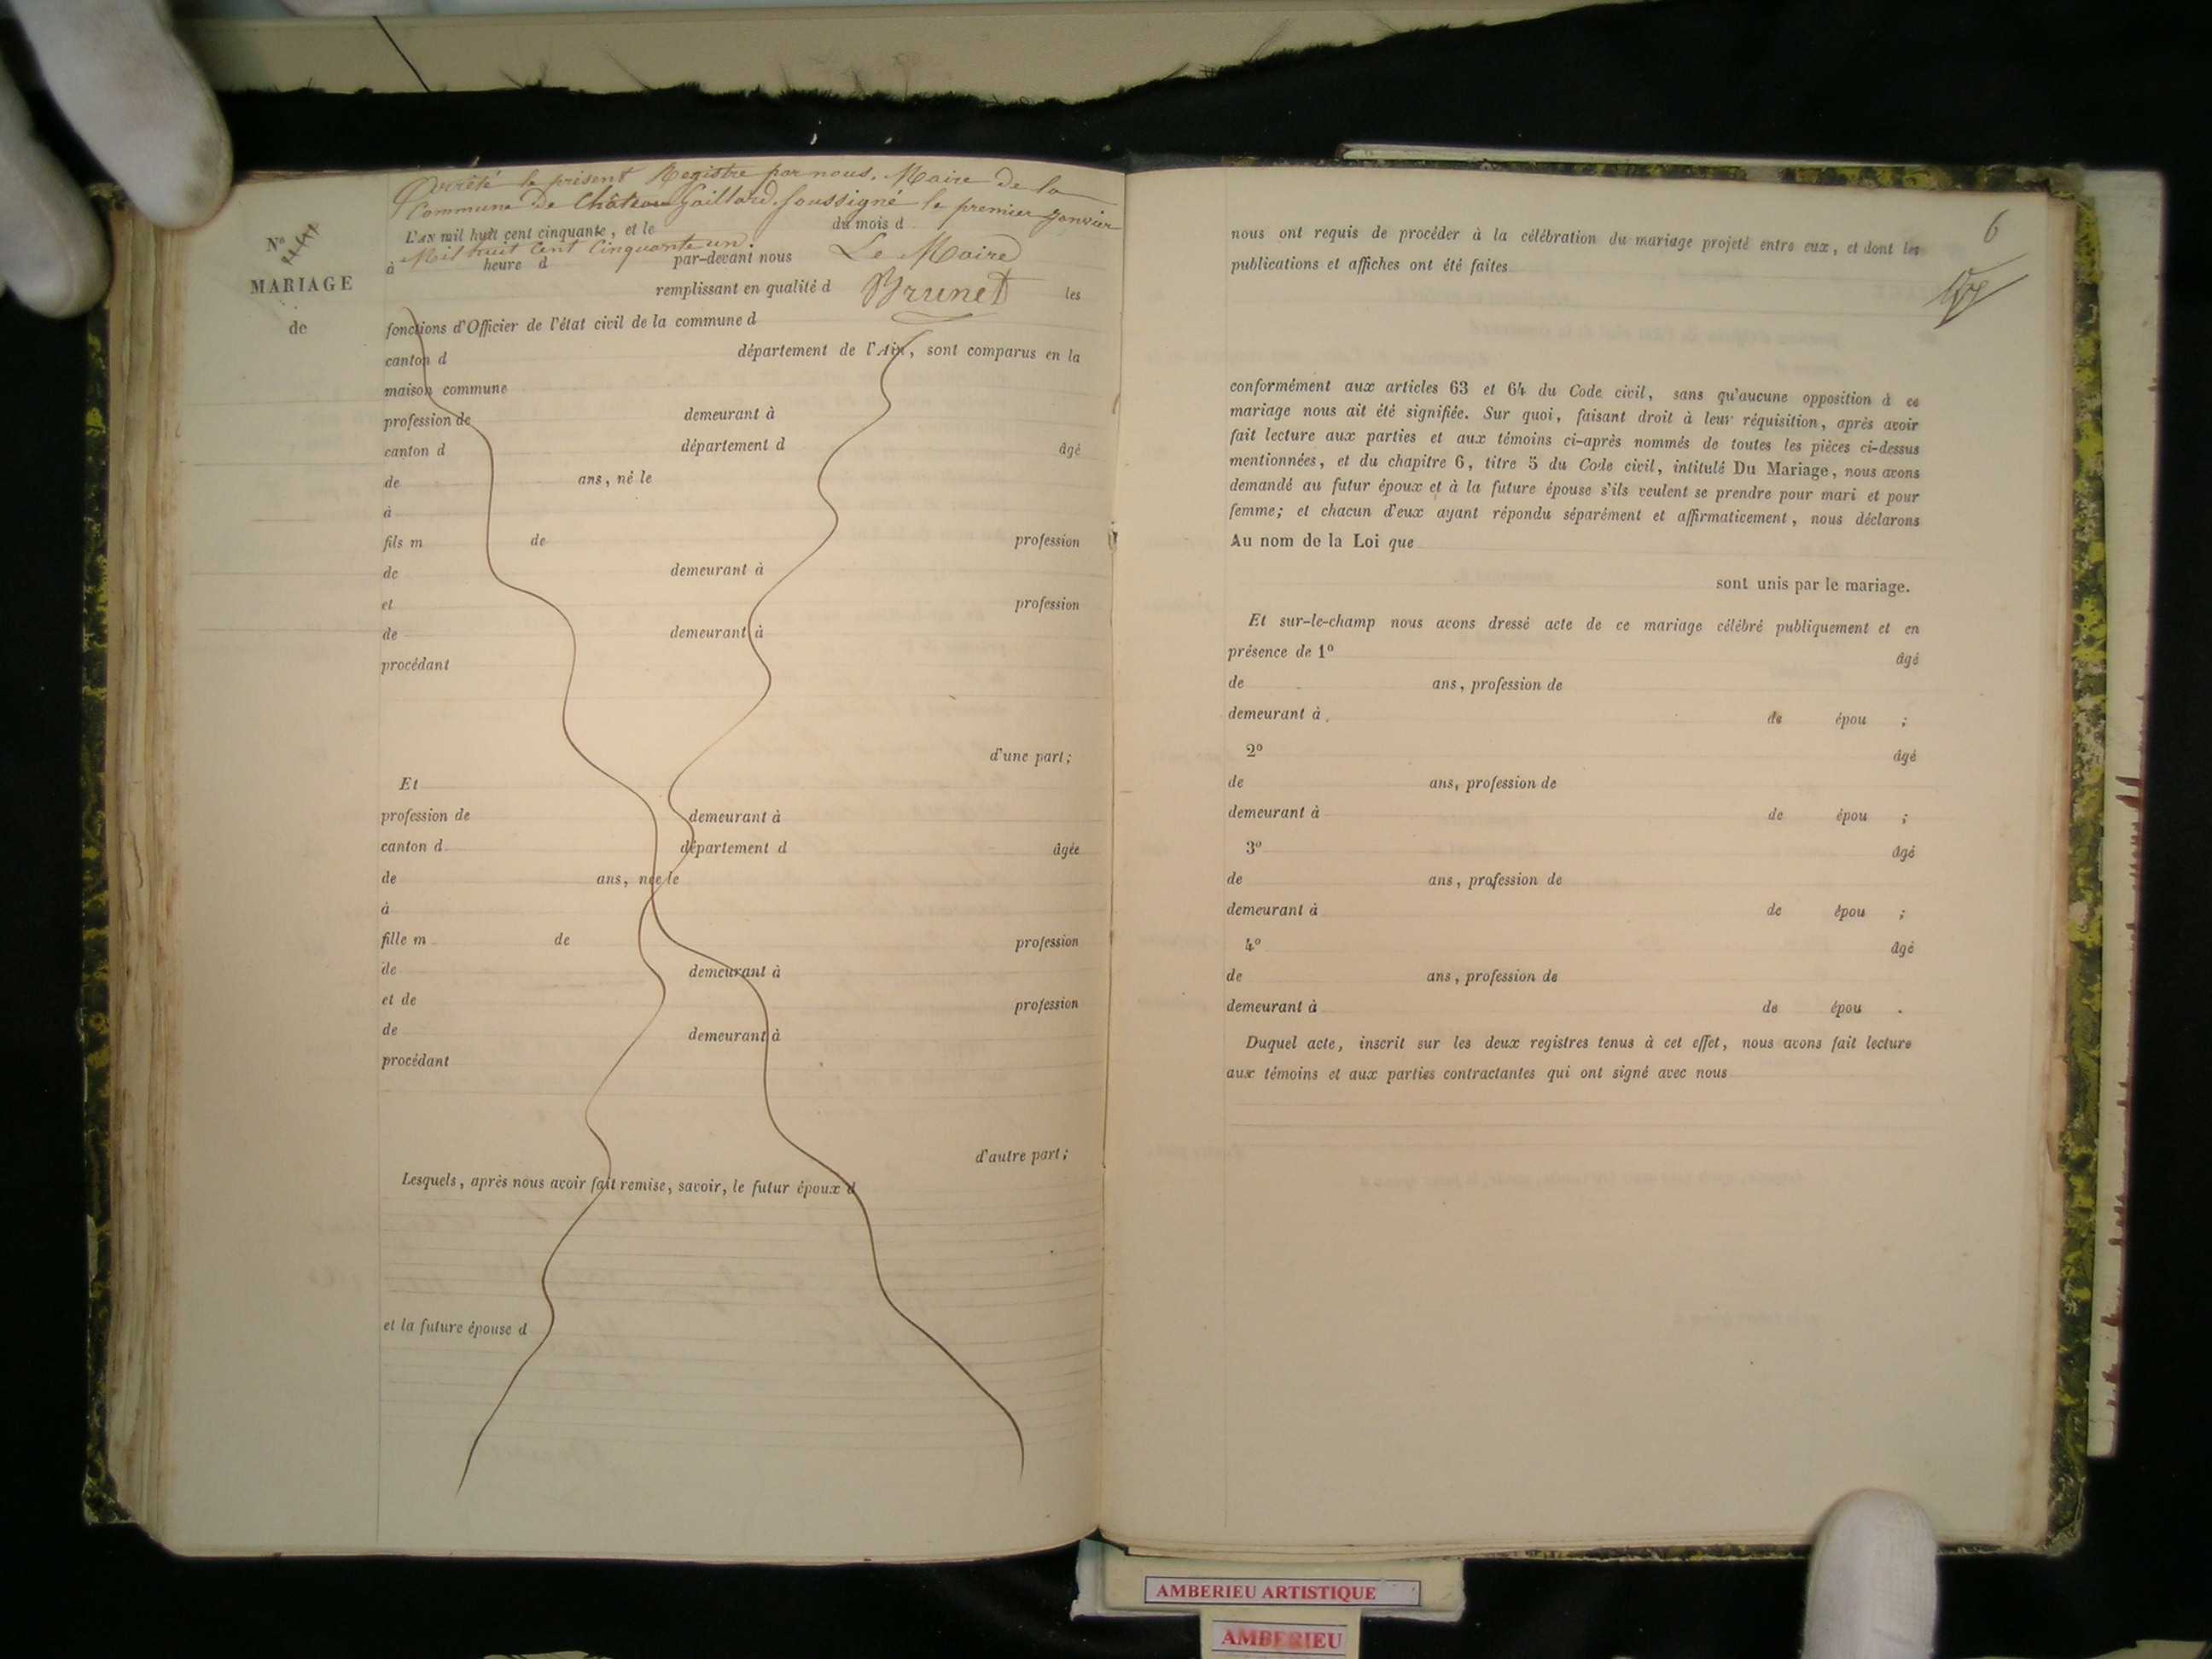 Arrêté le présent Registre par nous, Maire de la
Commune de Château Gaillard, soussigné le premier Janvier
L'AN mil huit cent cinquante, et le du mois d
Mil huit Cent Cinquante un.
à heure d par-devant nous Le Maire
remplissant en qualité d Brunet les
N°
MARIAGE
de
fonctions d'Officier de l'état civil de la commune d
canton d département de l'Ain, sont comparus en la
maison commune
profession de demeurant à
canton d département d âgé
de ans, né le
à
fils m de profession
de demeurant à
et profession
de demeurant à
procédant
d'une part;
Et
profession de demeurant à
canton d département d âgée
de ans, née le
à
fille m de profession
de demeurant à
et de profession
de demeurant à
procédant
d'autre part;
Lesquels, après nous avoir fait remise, savoir, le futur époux d
et la future épouse d
6
nous ont requis de procéder à la célébration du mariage projeté entre eux, et dont les
publications et affiches ont été faites
conformément aux articles 63 et 64 du Code civil, sans qu'aucune opposition à ce
mariage nous ait été signifiée. Sur quoi, faisant droit à leur réquisition, après avoir
fait lecture aux parties et aux témoins ci-après nommés de toutes les pièces ci-dessus
mentionnées, et du chapitre 6, titre 5 du Code civil, intitulé Du Mariage, nous avons
demandé au futur époux et à la future épouse s'ils veulent se prendre pour mari et pour
femme; et chacun d'eux ayant répondu séparément et affirmativement, nous déclarons
Au nom de la Loi que
sont unis par le mariage.
Et sur-le-champ nous avons dressé acte de ce mariage célébré publiquement et en
présence de 1° âgé
de ans, profession de
demeurant à de épou ;
2° âgé
de ans, profession de
demeurant à de épou ;
3° âgé
de ans, profession de
demeurant à de épou ;
4° âgé
de ans, profession de
demeurant à de épou .
Duquel acte, inscrit sur les deux registres tenus à cet effet, nous avons fait lecture
aux témoins et aux parties contractantes qui ont signé avec nous
AMBERIEU ARTISTIQUE
AMBERIEU